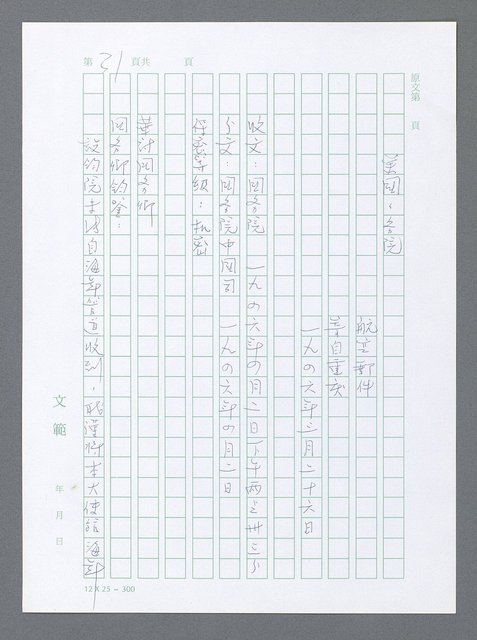 第 21 頁共 頁
原文第 頁
美國國務院
航空郵件
寄自重慶
一九四六年三月二十六日
收文：國務院 一九四六年四月二日下午兩點卅三分
分文：國務院中國司 一九四六年四月二日
保密等級：機密
華府國務卿
國務卿鈞鑒：
設鈞院未能自海軍管道收到，
將本大使館海軍
文範
年 月 日
12 X 25 - 300